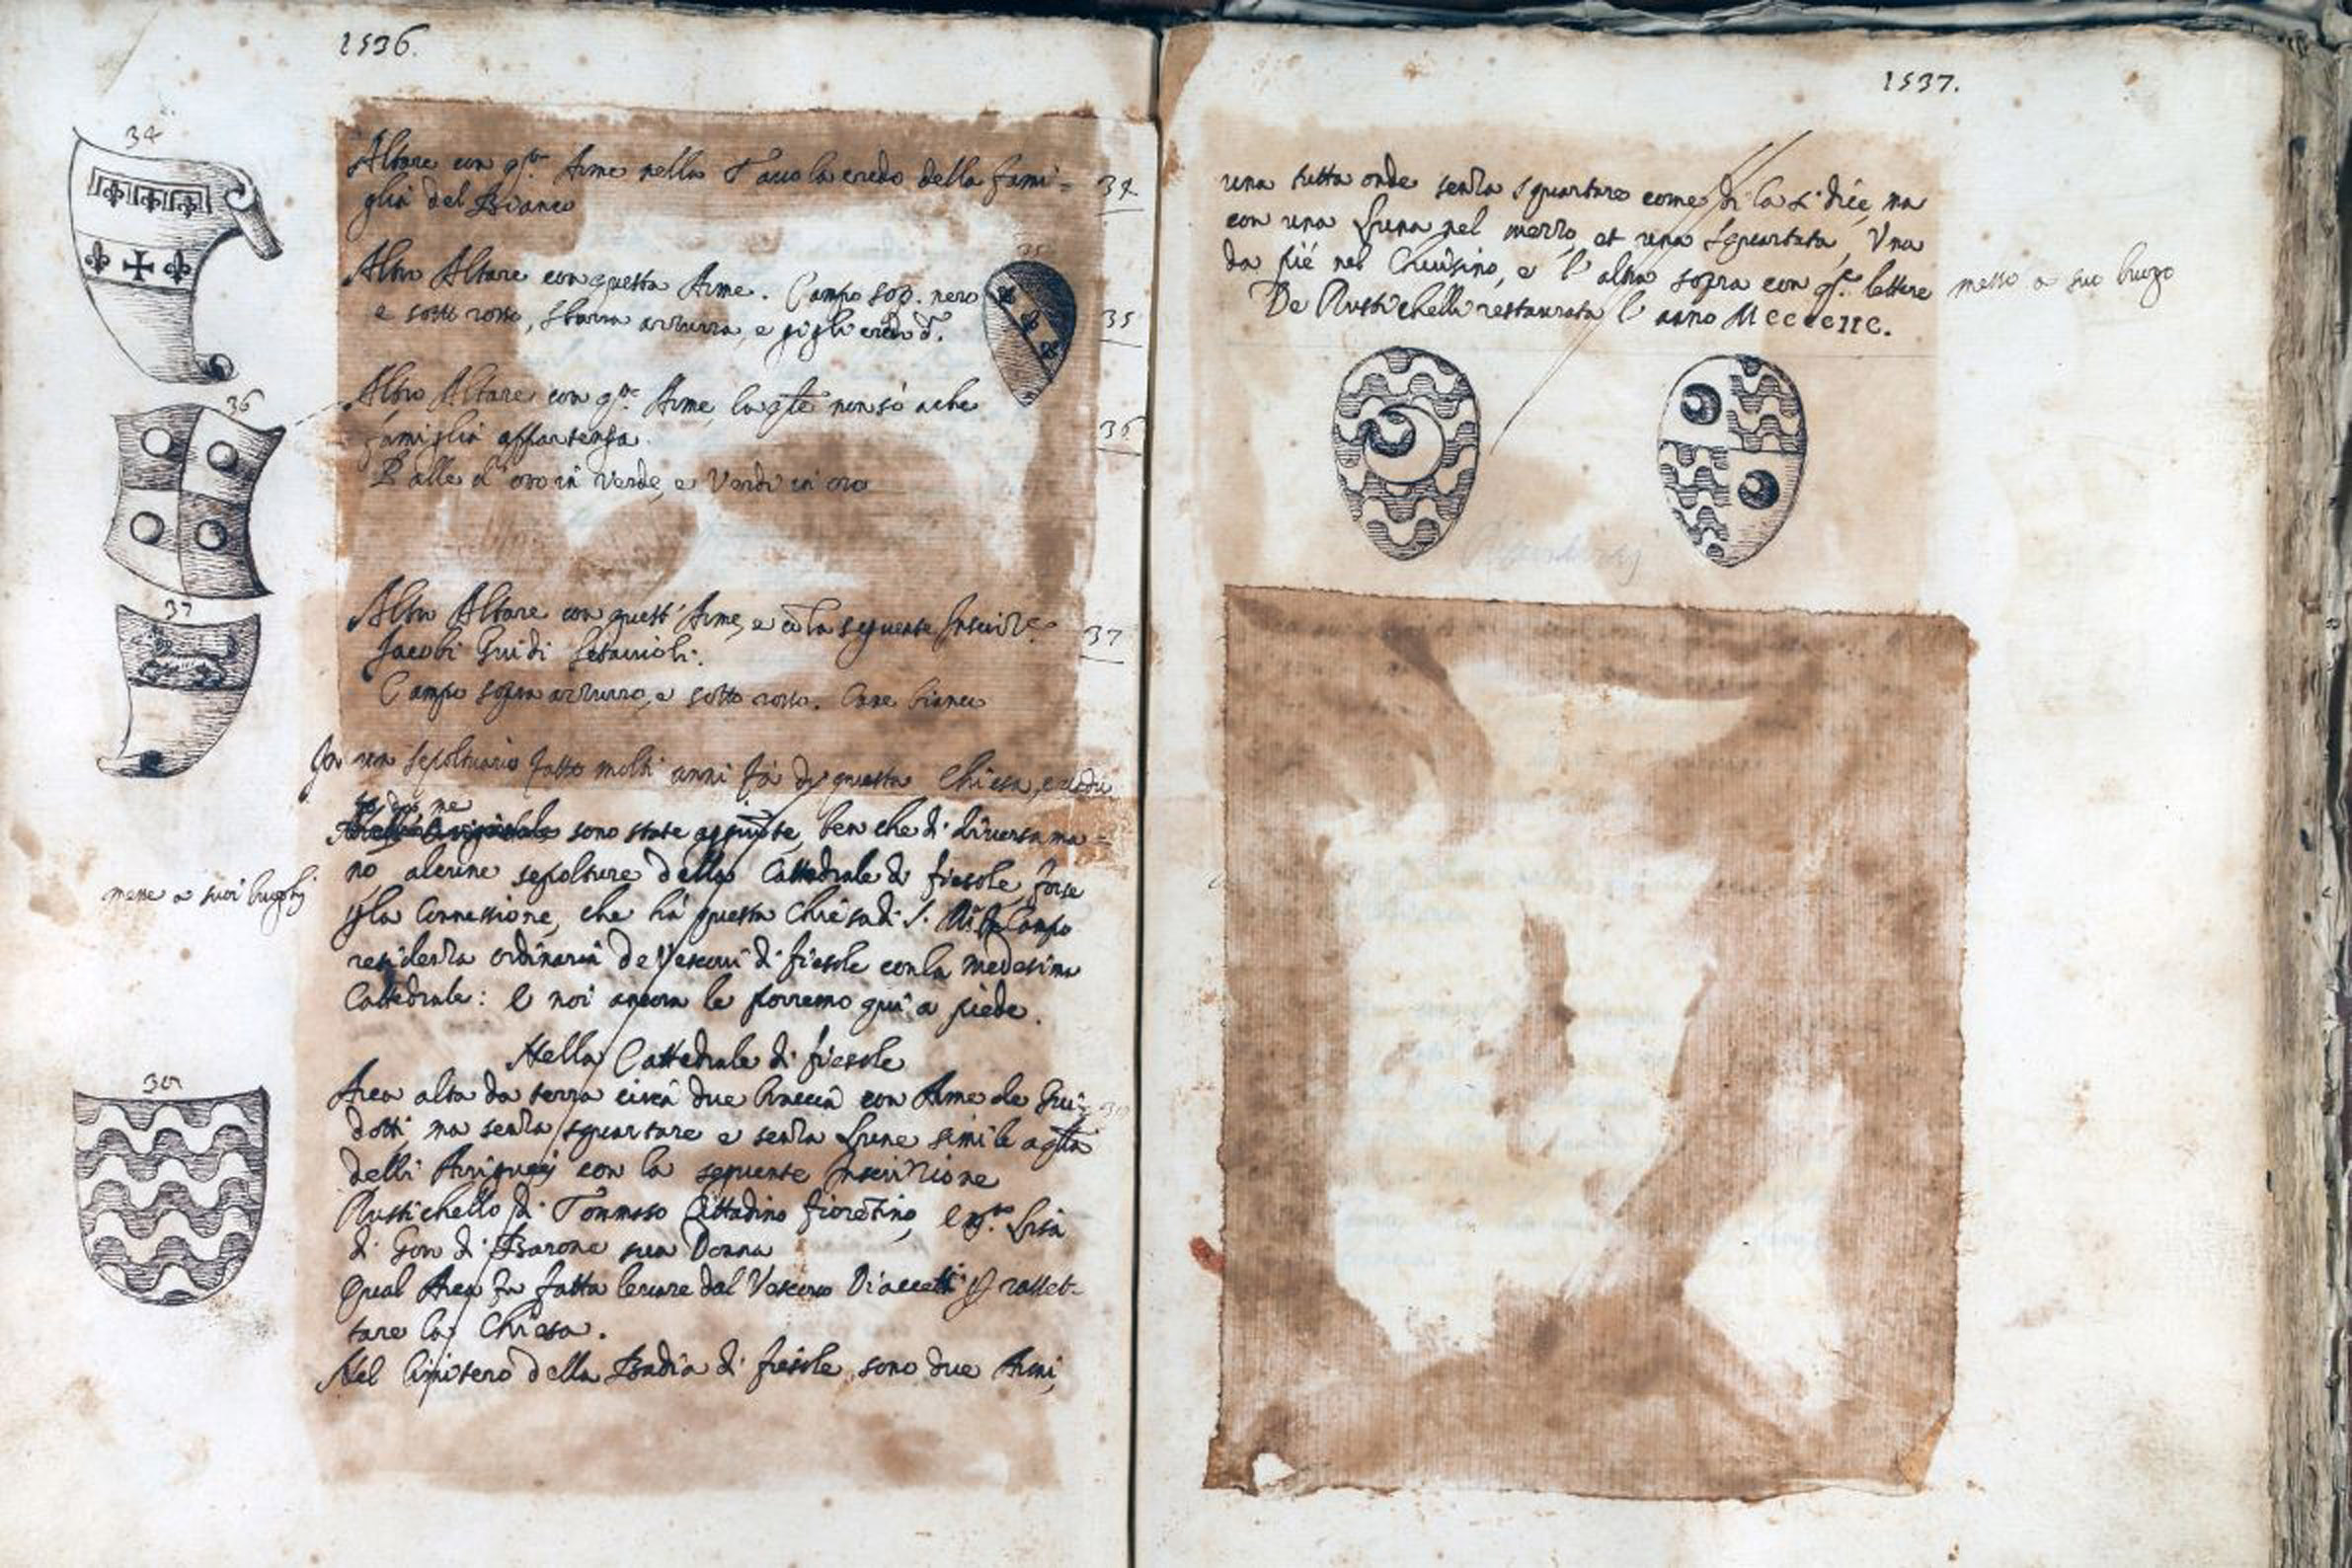 1536.
34
Altare con q.ta Arme nella Tavola credo della fami=
glia del Bianco
34
Altro Altare con questa Arme. Campo sop. nero
e sotto rosso, sbarra azzurra, e gigli d.
35
35
Altro Altare con q.ta Arme, la qle non sò a che
famiglia appartenga.
Palle d'oro in verde, e Verdi in oro
36
36
Altro Altare con quest'Arme, e cō la seguente Inscrize.
Jacobi Guidi
Campo sopra azzurro, e sotto rosso. Cane bianco
37
37
In un sepoltuario fatto molti anni fà di questa Chiesa,
da me
sono state aggiunte, ben che di diversa ma=
no alcune sepolture della Cattedrale di fiesole, forse
p la Connessione, che hà questa Chiesa di S. Mª in Campo
residenza ordinaria de Vescovi di fiesole con la medesima
Cattedrale: e noi ancora le porremo qui a piede.
messe a suoi luoghi
Nella Cattedrale di fiesole
Arca alta da terra circa due braccia con Arme de Gui=
dotti, ma senza squartare e senza Lune simile a qlla
delli Arrigucci con la seguente Inscrizione
Rustichello di Tommaso Cittadino fiorētino, e M.ª Lisa
di Gov di Barone sua Donna
Qual Arca fu fatta levare dal Vescovo Diacceti p rasset=
tare la Chiesa.
Nel Cimitero della Badia di fiesole sono due Armi,
1537.
una tutta onde senza squartare come di la si dice, ma
con una Luna nel mezzo, et una squartata, Una
da piè nel Chiusino, e l'altra sopra con q.te lettere
De Rustichelli restaurata l'anno MccccIIC.
messo a suo luogo